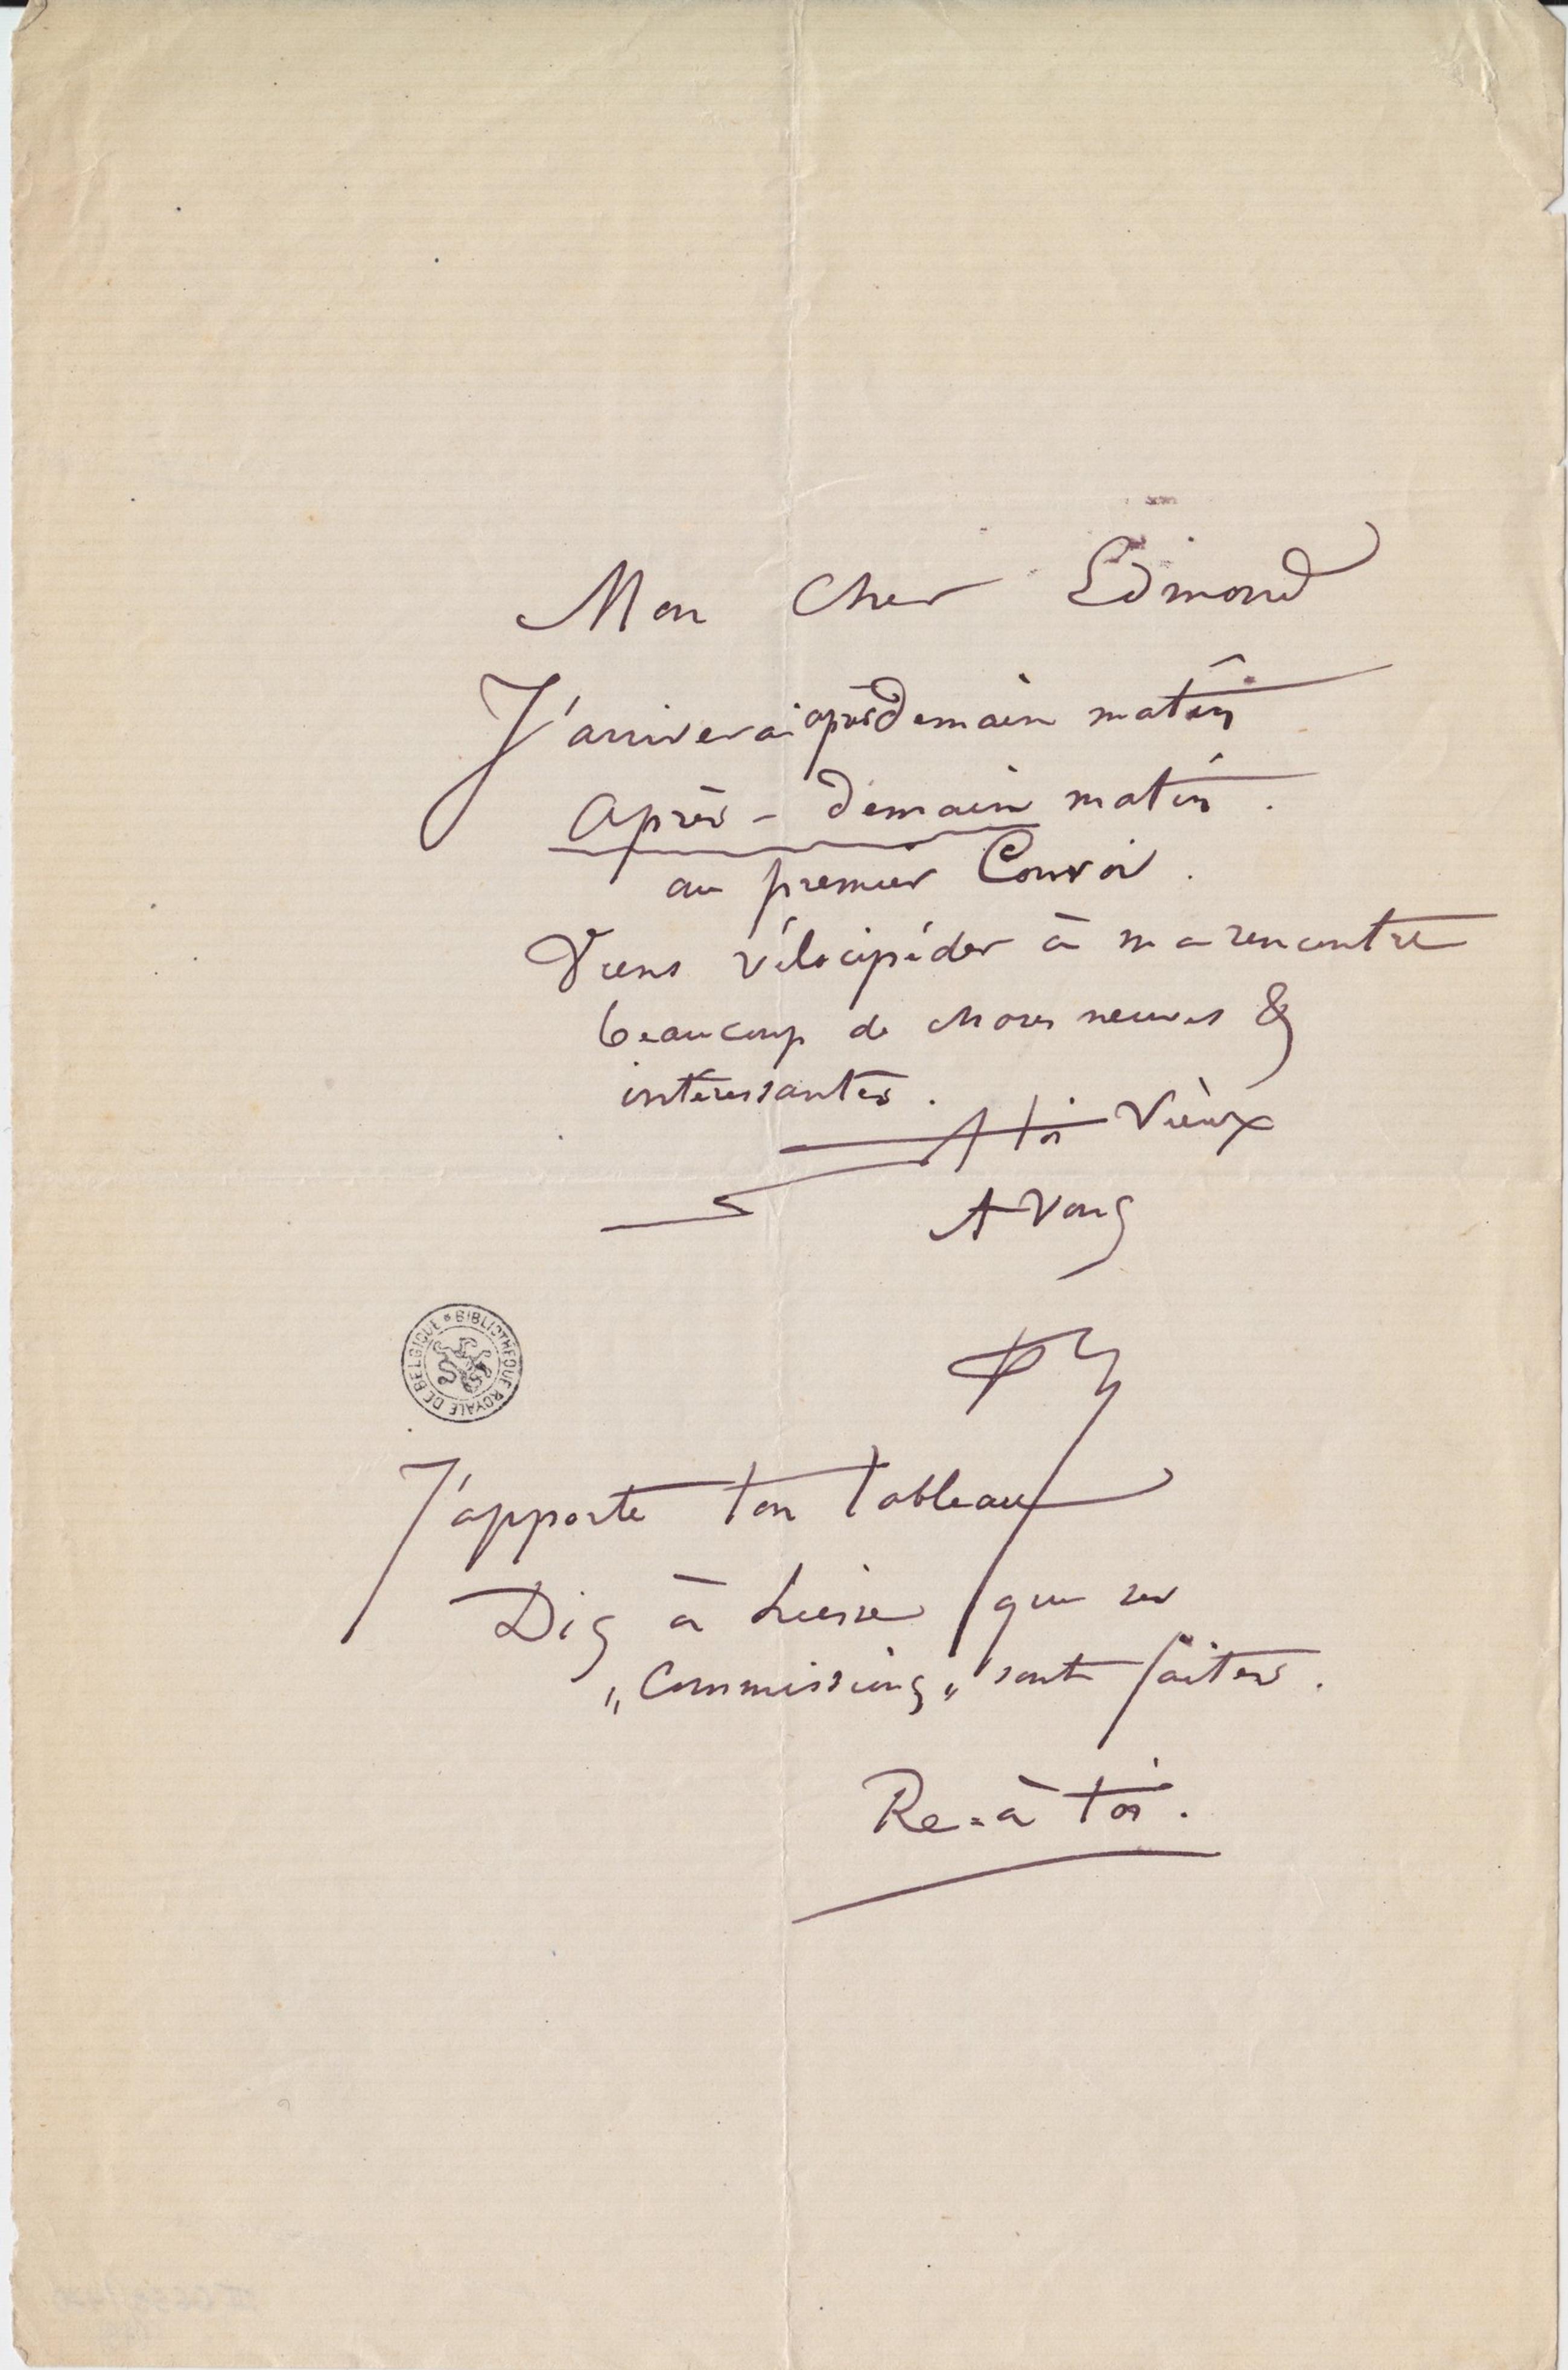 Mon Cher Edmond
J'arriverai après demain matin
Après-demain matin.
au premier Convoi.
Viens vélocipéder à ma rencontre
beaucoup de choses neuves &
intéressantes.
A toi Vieux
A Vous
J'apporte ton tableau
Dis à que ses
„Commissions„ sont faites.
Re=à toi.
BIBLIOTHEQUE ROYALE DE BELGIQUE